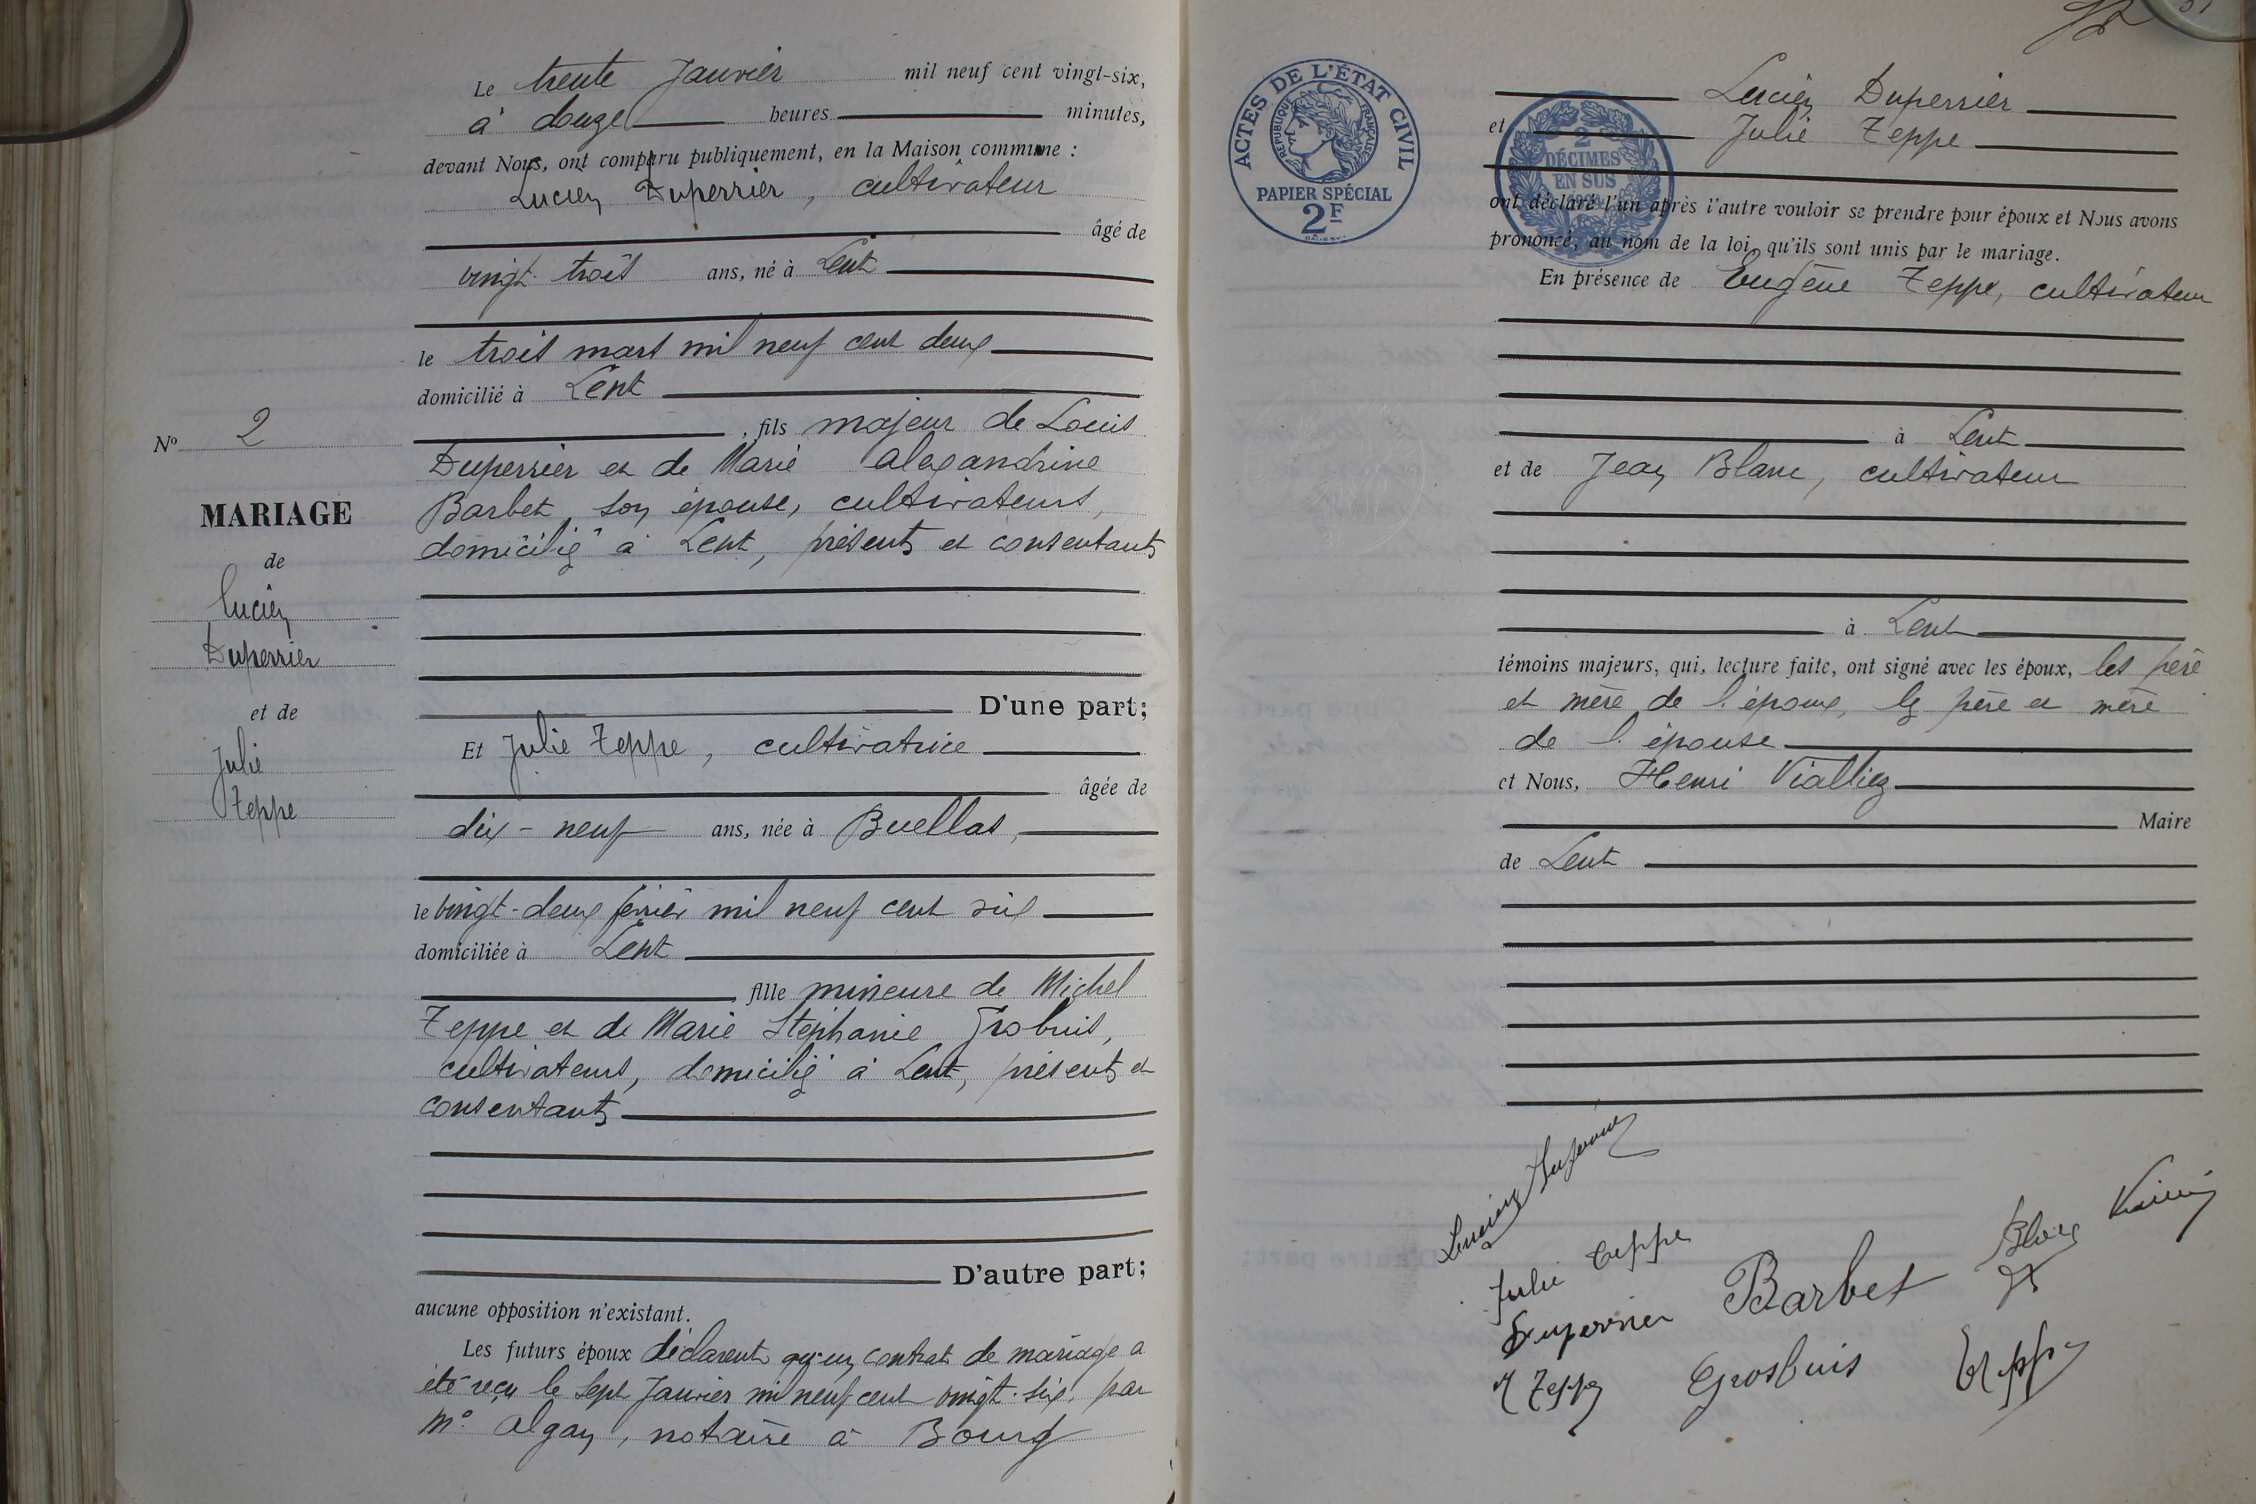 Le trente Janvier mil neuf cent vingt-six,
à douze heures minutes,
devant Nous, ont comparu publiquement, en la Maison commune :
Lucien Duperrier, cultivateur
âgé de
vingt-trois ans, né à Lent
le trois mars mil neuf cent deux
domicilié à Lent
, fils majeur de Louis
Duperrier et de Marie Alexandrine
Barbet, son épouse, cultivateurs,
domiciliés à Lent, présents et consentants
D'une part;
Et Julie Teppe, cultivatrice
âgée de
dix-neuf ans, née à Buellas,
le vingt-deux février mil neuf cent six
domiciliée à Lent
fille mineure de Michel
Teppe et de Marie Stéphanie Grobuis,
cultivateurs, domiciliés à Lent, présents et
consentants
D'autre part;
aucune opposition n'existant.
Les futurs époux déclarent qu'un contrat de mariage a
été reçu le sept Janvier mil neuf cent vingt-six, par
Me Algan, notaire à Bourg
No 2
MARIAGE
de
Lucien
Duperrier
et de
Julie
Teppe
ACTES DE L'ÉTAT CIVIL
RÉPUBLIQUE FRANÇAISE
PAPIER SPÉCIAL
2F
2
DÉCIMES
EN SUS
Lucien Duperrier
et Julie Teppe
ont déclaré l'un après l'autre vouloir se prendre pour époux et Nous avons
prononcé, au nom de la loi, qu'ils sont unis par le mariage.
En présence de Eugène Teppe, cultivateur
à Lent
et de Jean Blanc, cultivateur
à Lent
témoins majeurs, qui, lecture faite, ont signé avec les époux, les père
et mère de l'époux, les père et mère
de l'épouse
et Nous, Henri Viallier
Maire
de Lent
Lucien Duperrier
Julie Teppe
Duperrier Barbet
Teppe Grosbuis Teppe